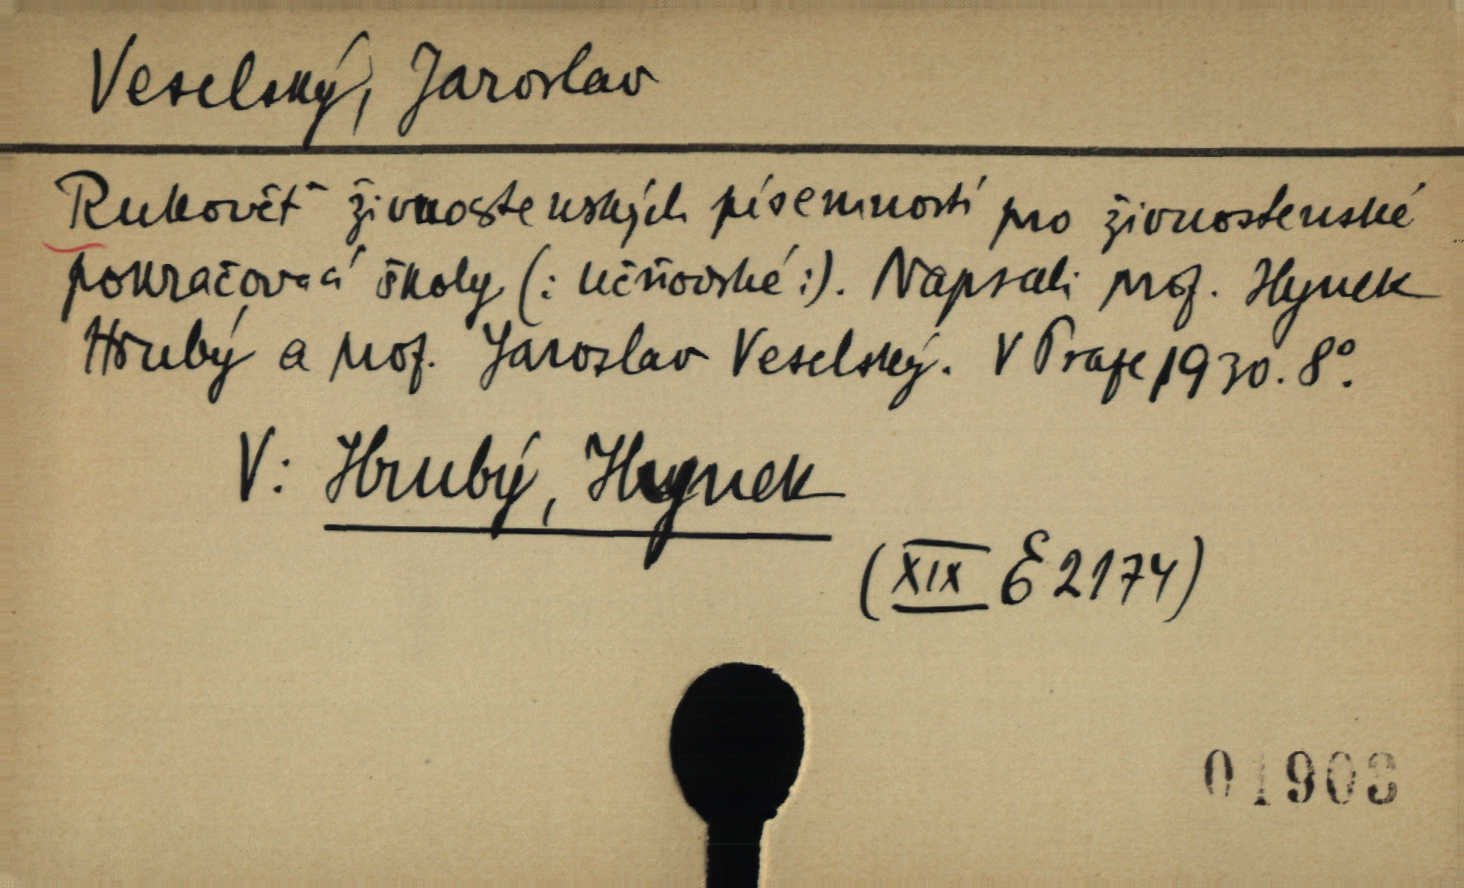 Veselský, Jaroslav
Rukověť živnostenských písemností pro živnostenské
pokračovací školy (: učňovské :). Napsali prof. Hynek
Hrubý a prof. Jaroslav Veselský. V Praze 1930. 8°.
V: Hrubý, Hynek
(XIX E 2174)
01903